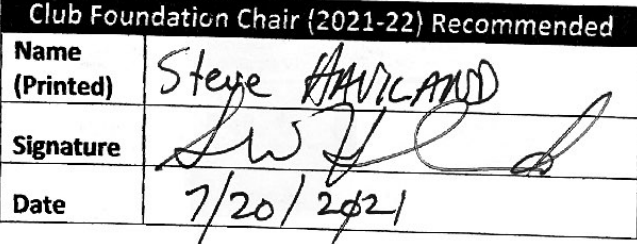 Club Foundation Chair (2021-22) Recommended
Name (Printed) Steve HAVILAND
Signature
Date 7/20/2021